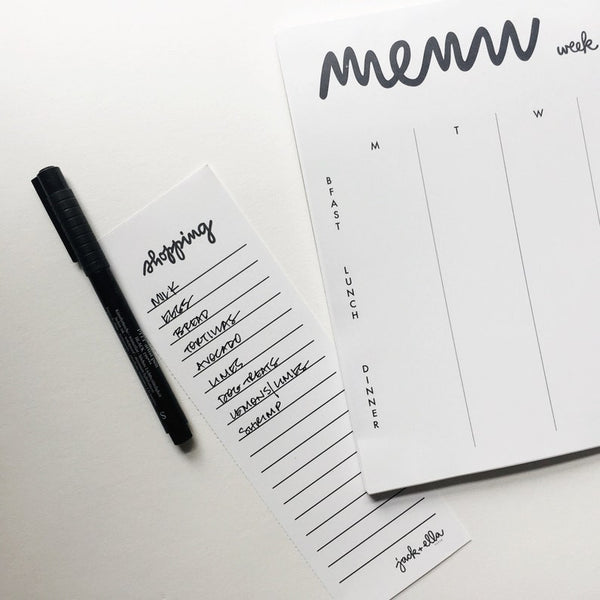 menu week
M T W
BFAST
LUNCH
DINNER
shopping
MILK
EGGS
BREAD
TORTILLAS
AVOCADO
LIMES
DOG TREATS
LEMONS/LIMES
SHRIMP
jack+ella
S